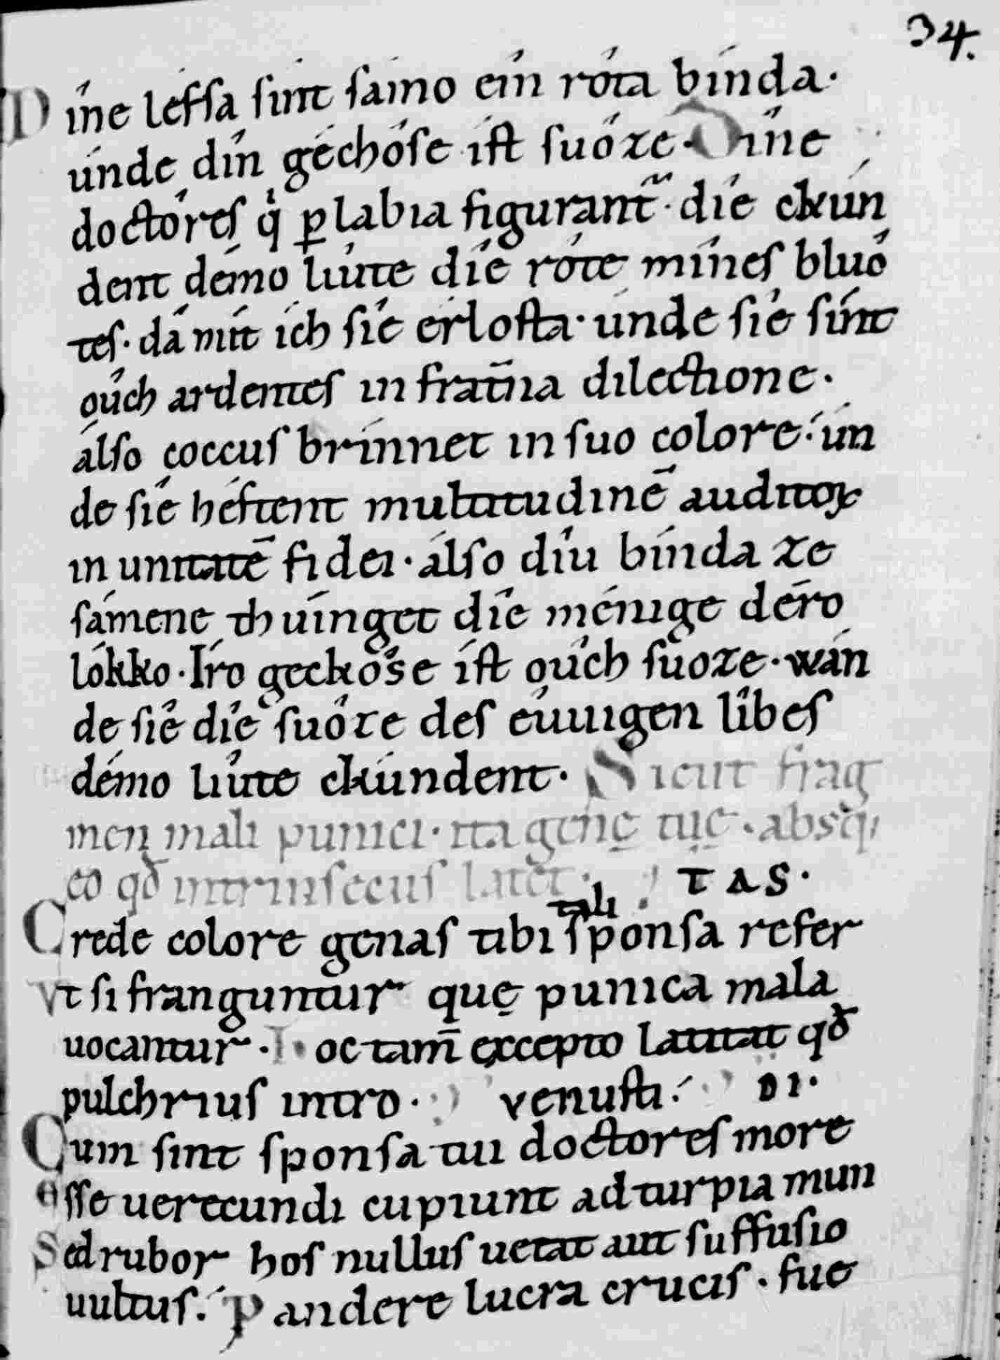 34.
Dîne lefsa sint sámo eîn rôta bínda·
únde dîn géchôse ist suôze· Dîne
doctóres q́ ꝑ labia figurant̃· díe chún
dent démo liûte díe rôte mînes bluô
tes· dá mít ích síe erlôsta· unde síe sínt
oûch ardentes in frat̃na dilectione·
álso coccus brínnet in suo colore· ún
de síe héftent multitudinē auditoꝝ
in unitatē fidei· álso díu bínda ze
sámene thuínget díe ménige déro
lókko· Íro gechôse íst oûch suôze· wán
de síe díe suôze des êuuigen lîbes
démo liûte chúndent· Sicut frag
men mali punici· ita genę tuę· absq;
eo qđ intrinsecus latet· TAS·
tali
Crede colore genas tibi sponsa refer
Vt si franguntur quę punica mala
uocantur· Hoc tam̄ excepto latitat qđ
pulchrius intro· venusti· DI·
Cum sint sponsa tui doctores more
Esse uerecundi cupiunt ad turpia mun
Sed rubor hos nullus uetat aut suffusio
uultus· Pandere lucra crucis· fuę